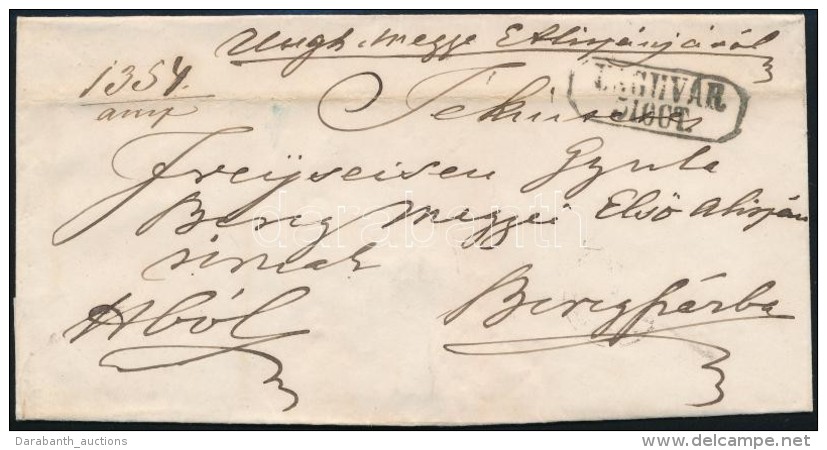 Ungh Megye Alispánjától
1354.
UNGHVÁR
5/OCT.
Tekintetes
Freyseisen Gyula
Bereg Megyei Első Alispán
úrnak
Hból
Beregszászba
darabanth
Darabanth_auctions